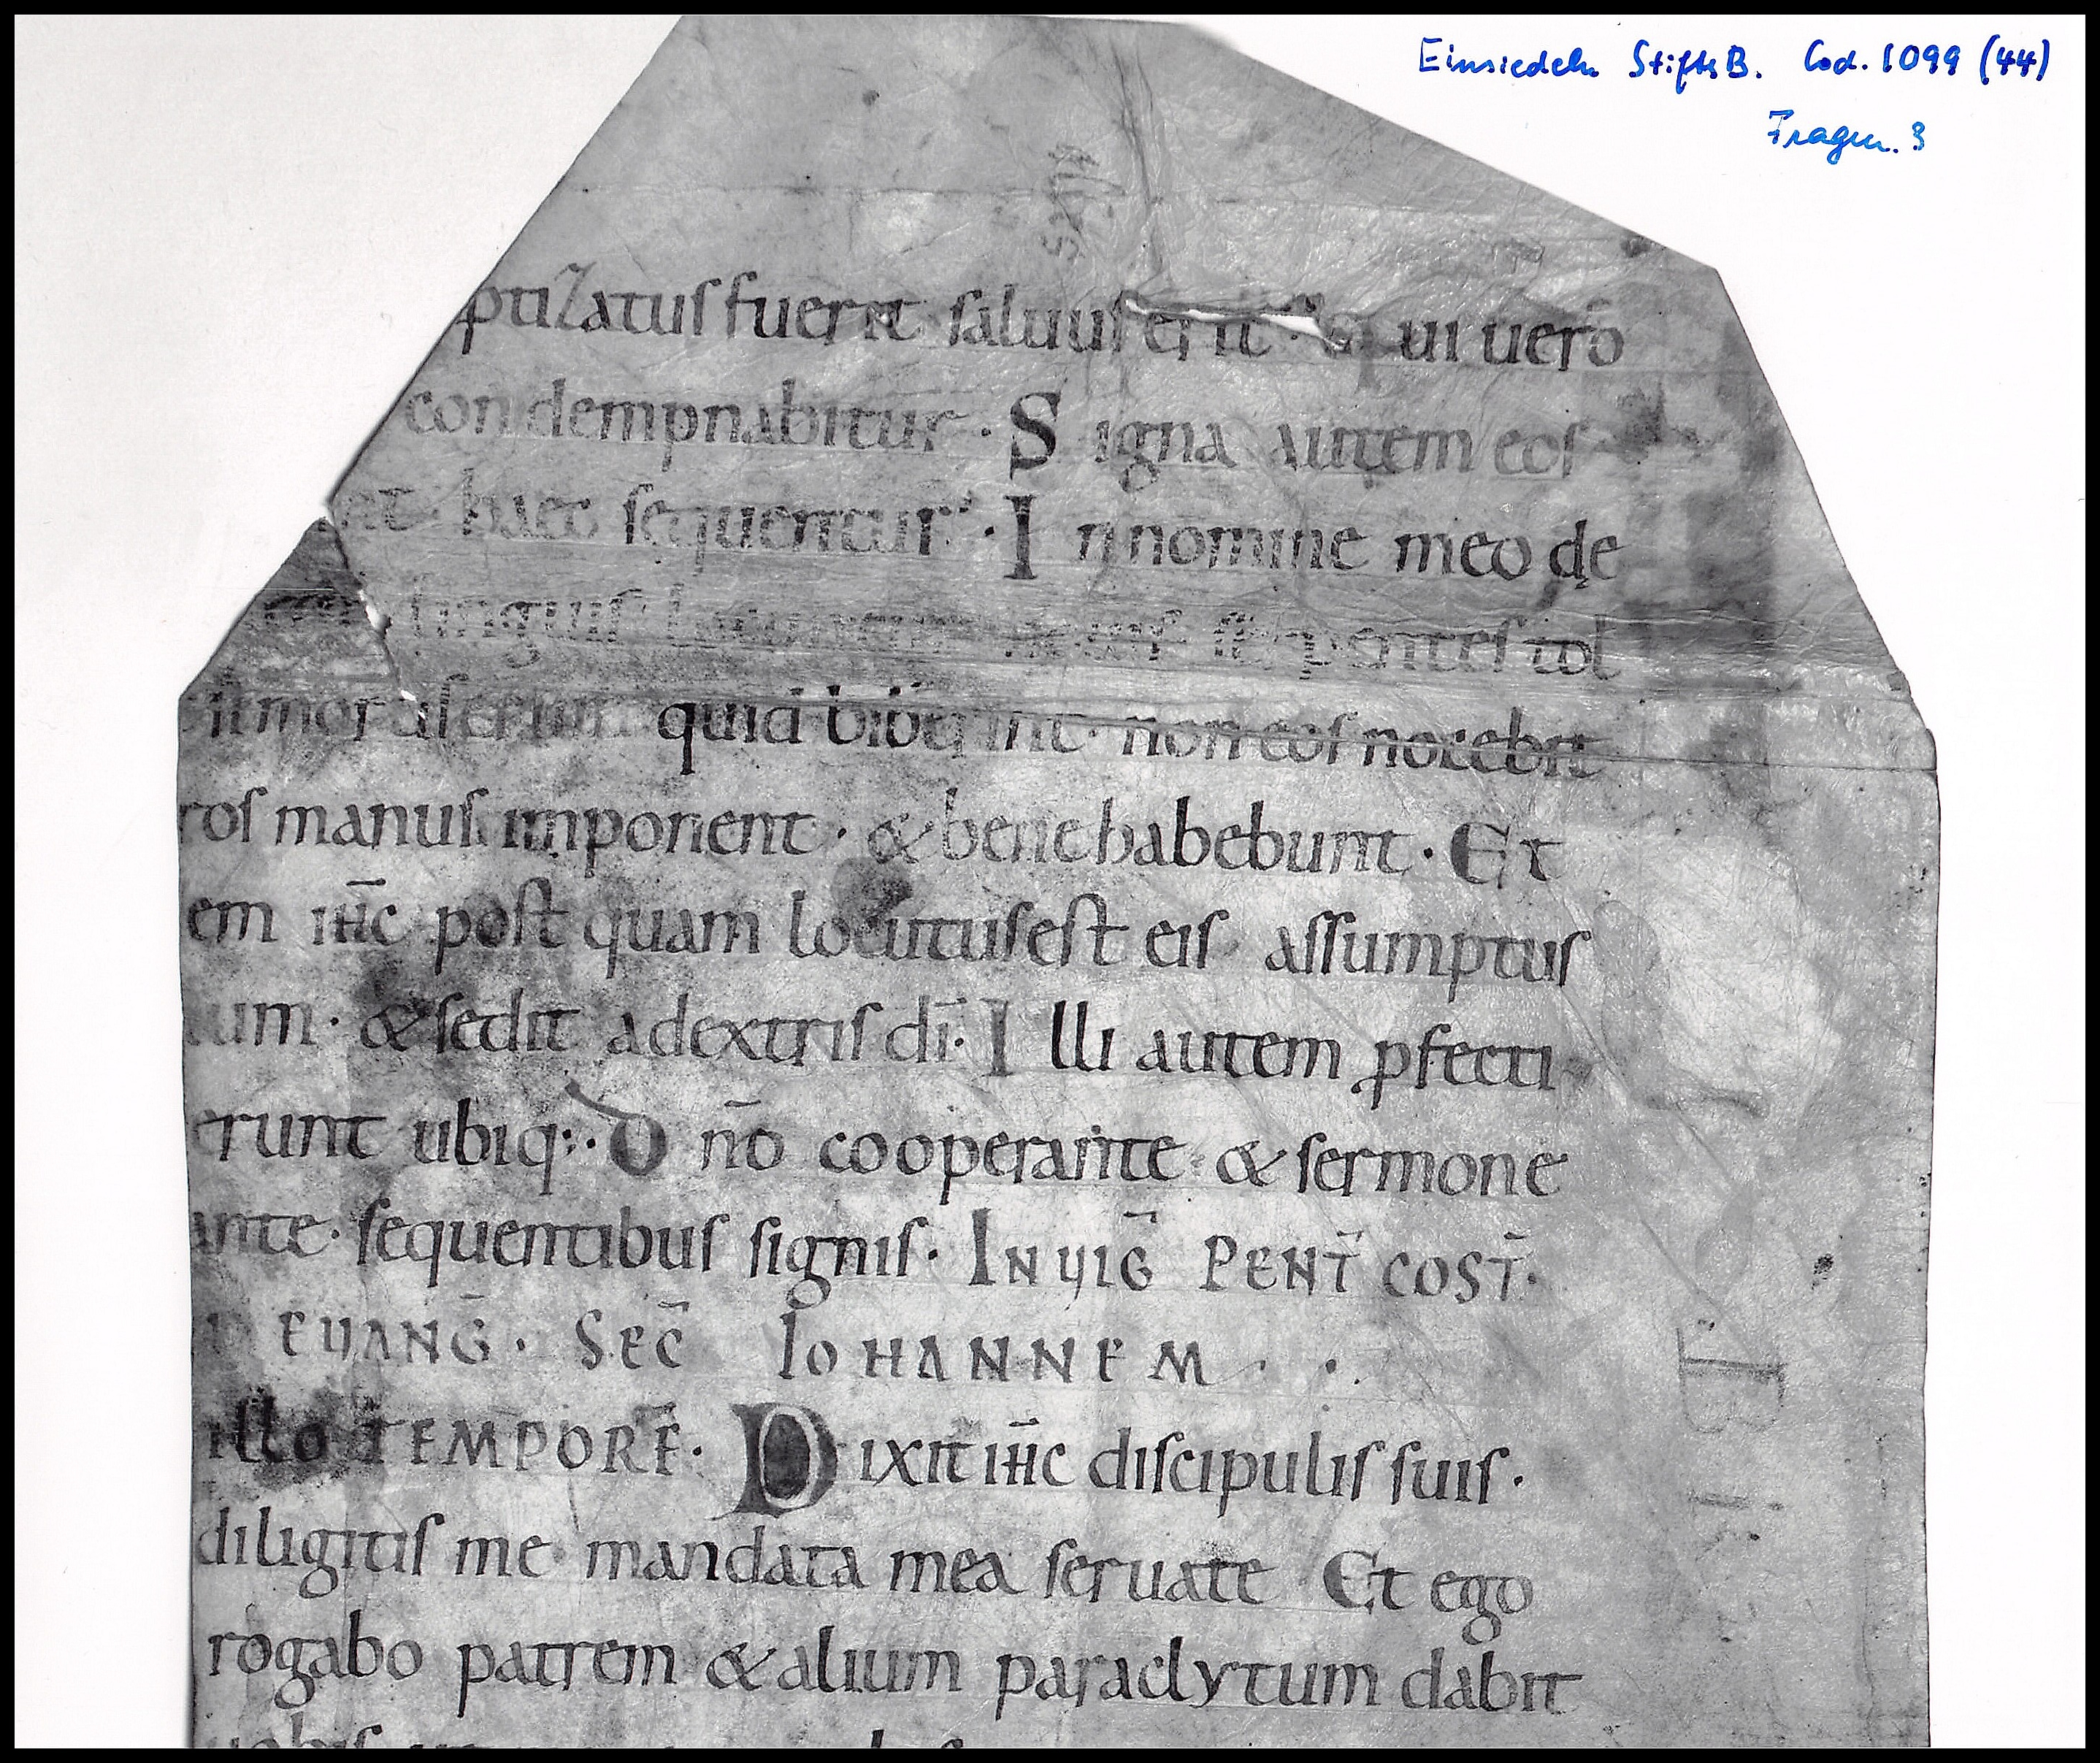 Einsiedeln StiftsB. Cod. 1099 (44)
Fragm. 3
ptizatus fuerit saluus erit · qui uero
condempnabitur · Signa autem eos
haec sequentur · In nomine meo de
linguis serpentes tol
quid biberint · non eos nocebit
ros manus imponent · & bene habebunt · Et
em ihc̄ post quam locutus est eis assumptus
um · & sedit adextris dī · Illi autem ꝓfecti
erunt ubiq: · Dnō cooperante & sermone
ante · sequentibus signis · IN UIḠ PENT̄COST̄ ·
EUANḠ · SEC̄ IOHANNEM ·
illo TEMPORE · Dixit ihc̄ discipulis suis ·
diligitis me mandata mea seruate Et ego
rogabo patrem & alium paraclytum dabit